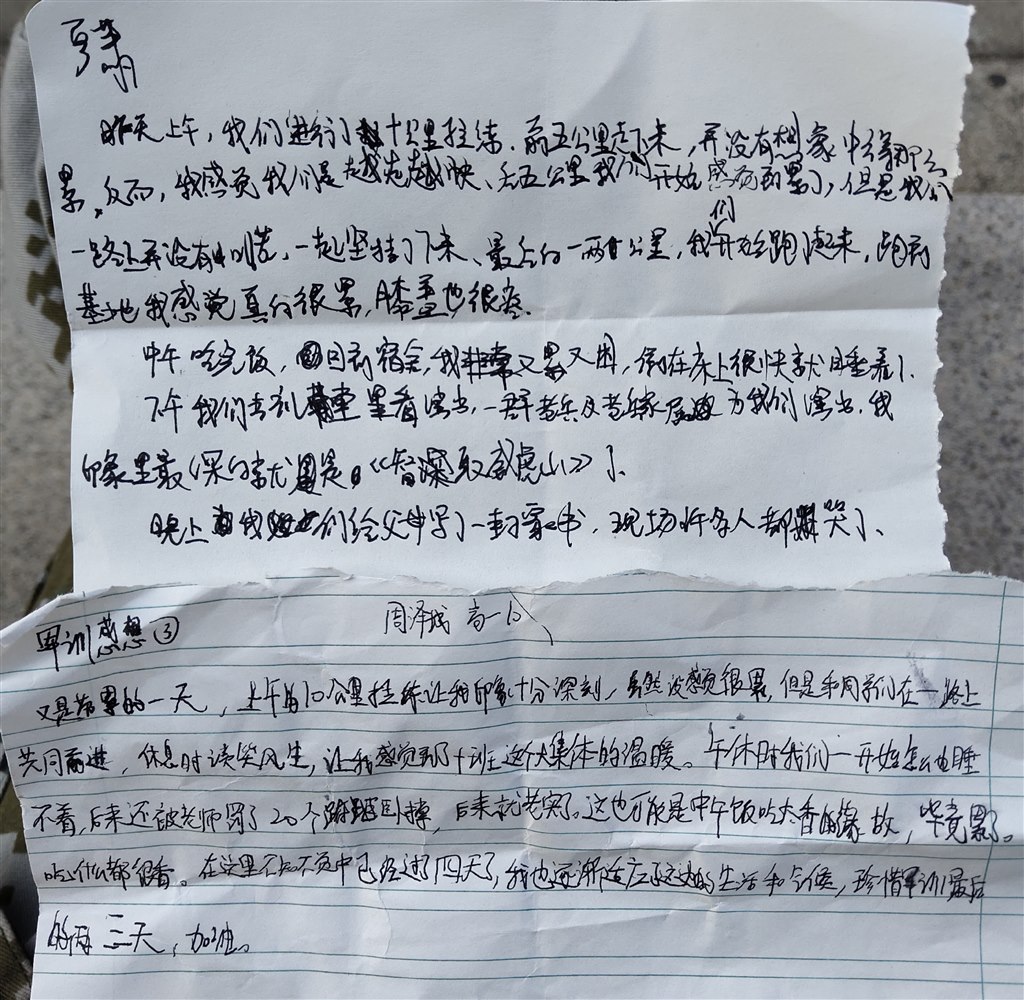 昨天上午，我们进行了十公里拉练.前五公里走下来，并没有想象中得那么
累，反而，我感觉我们是越走越快、后五公里我们开始感觉到累了，但是我们
一路上并没有叫苦，一起坚持了下来、最后的一两公里，我们开始跑了起来，跑到
基地我感觉真的很累，膝盖也很疼.
中午吃完饭，回到宿舍，我非常又累又困，倒在床上很快就睡着了、
下午我们去礼堂里看演出，一群老兵及老兵家属为我们演出，我
印象里最深的就是《智深取威虎山》了、
晚上我们给父母写了一封家书，现场许多人都哭了、
军训感想③ 周泽 高一10
又是劳累的一天，上午的10公里拉练让我印象十分深刻，虽然没感觉很累，但是和同学们在一路上
共同前进，休息时谈笑风生，让我感觉到了十班这个大集体的温暖。午休时我们一开始怎么也睡
不着，后来还被老师罚了20个蹲，后来就老实了。这也可能是中午饭吃太香的缘故，毕竟累了。
吃什么都很香。在这里不知不觉中已经过了四天了，我也逐渐适应了这边的生活和气候，珍惜军训最后
的两三天，加油。